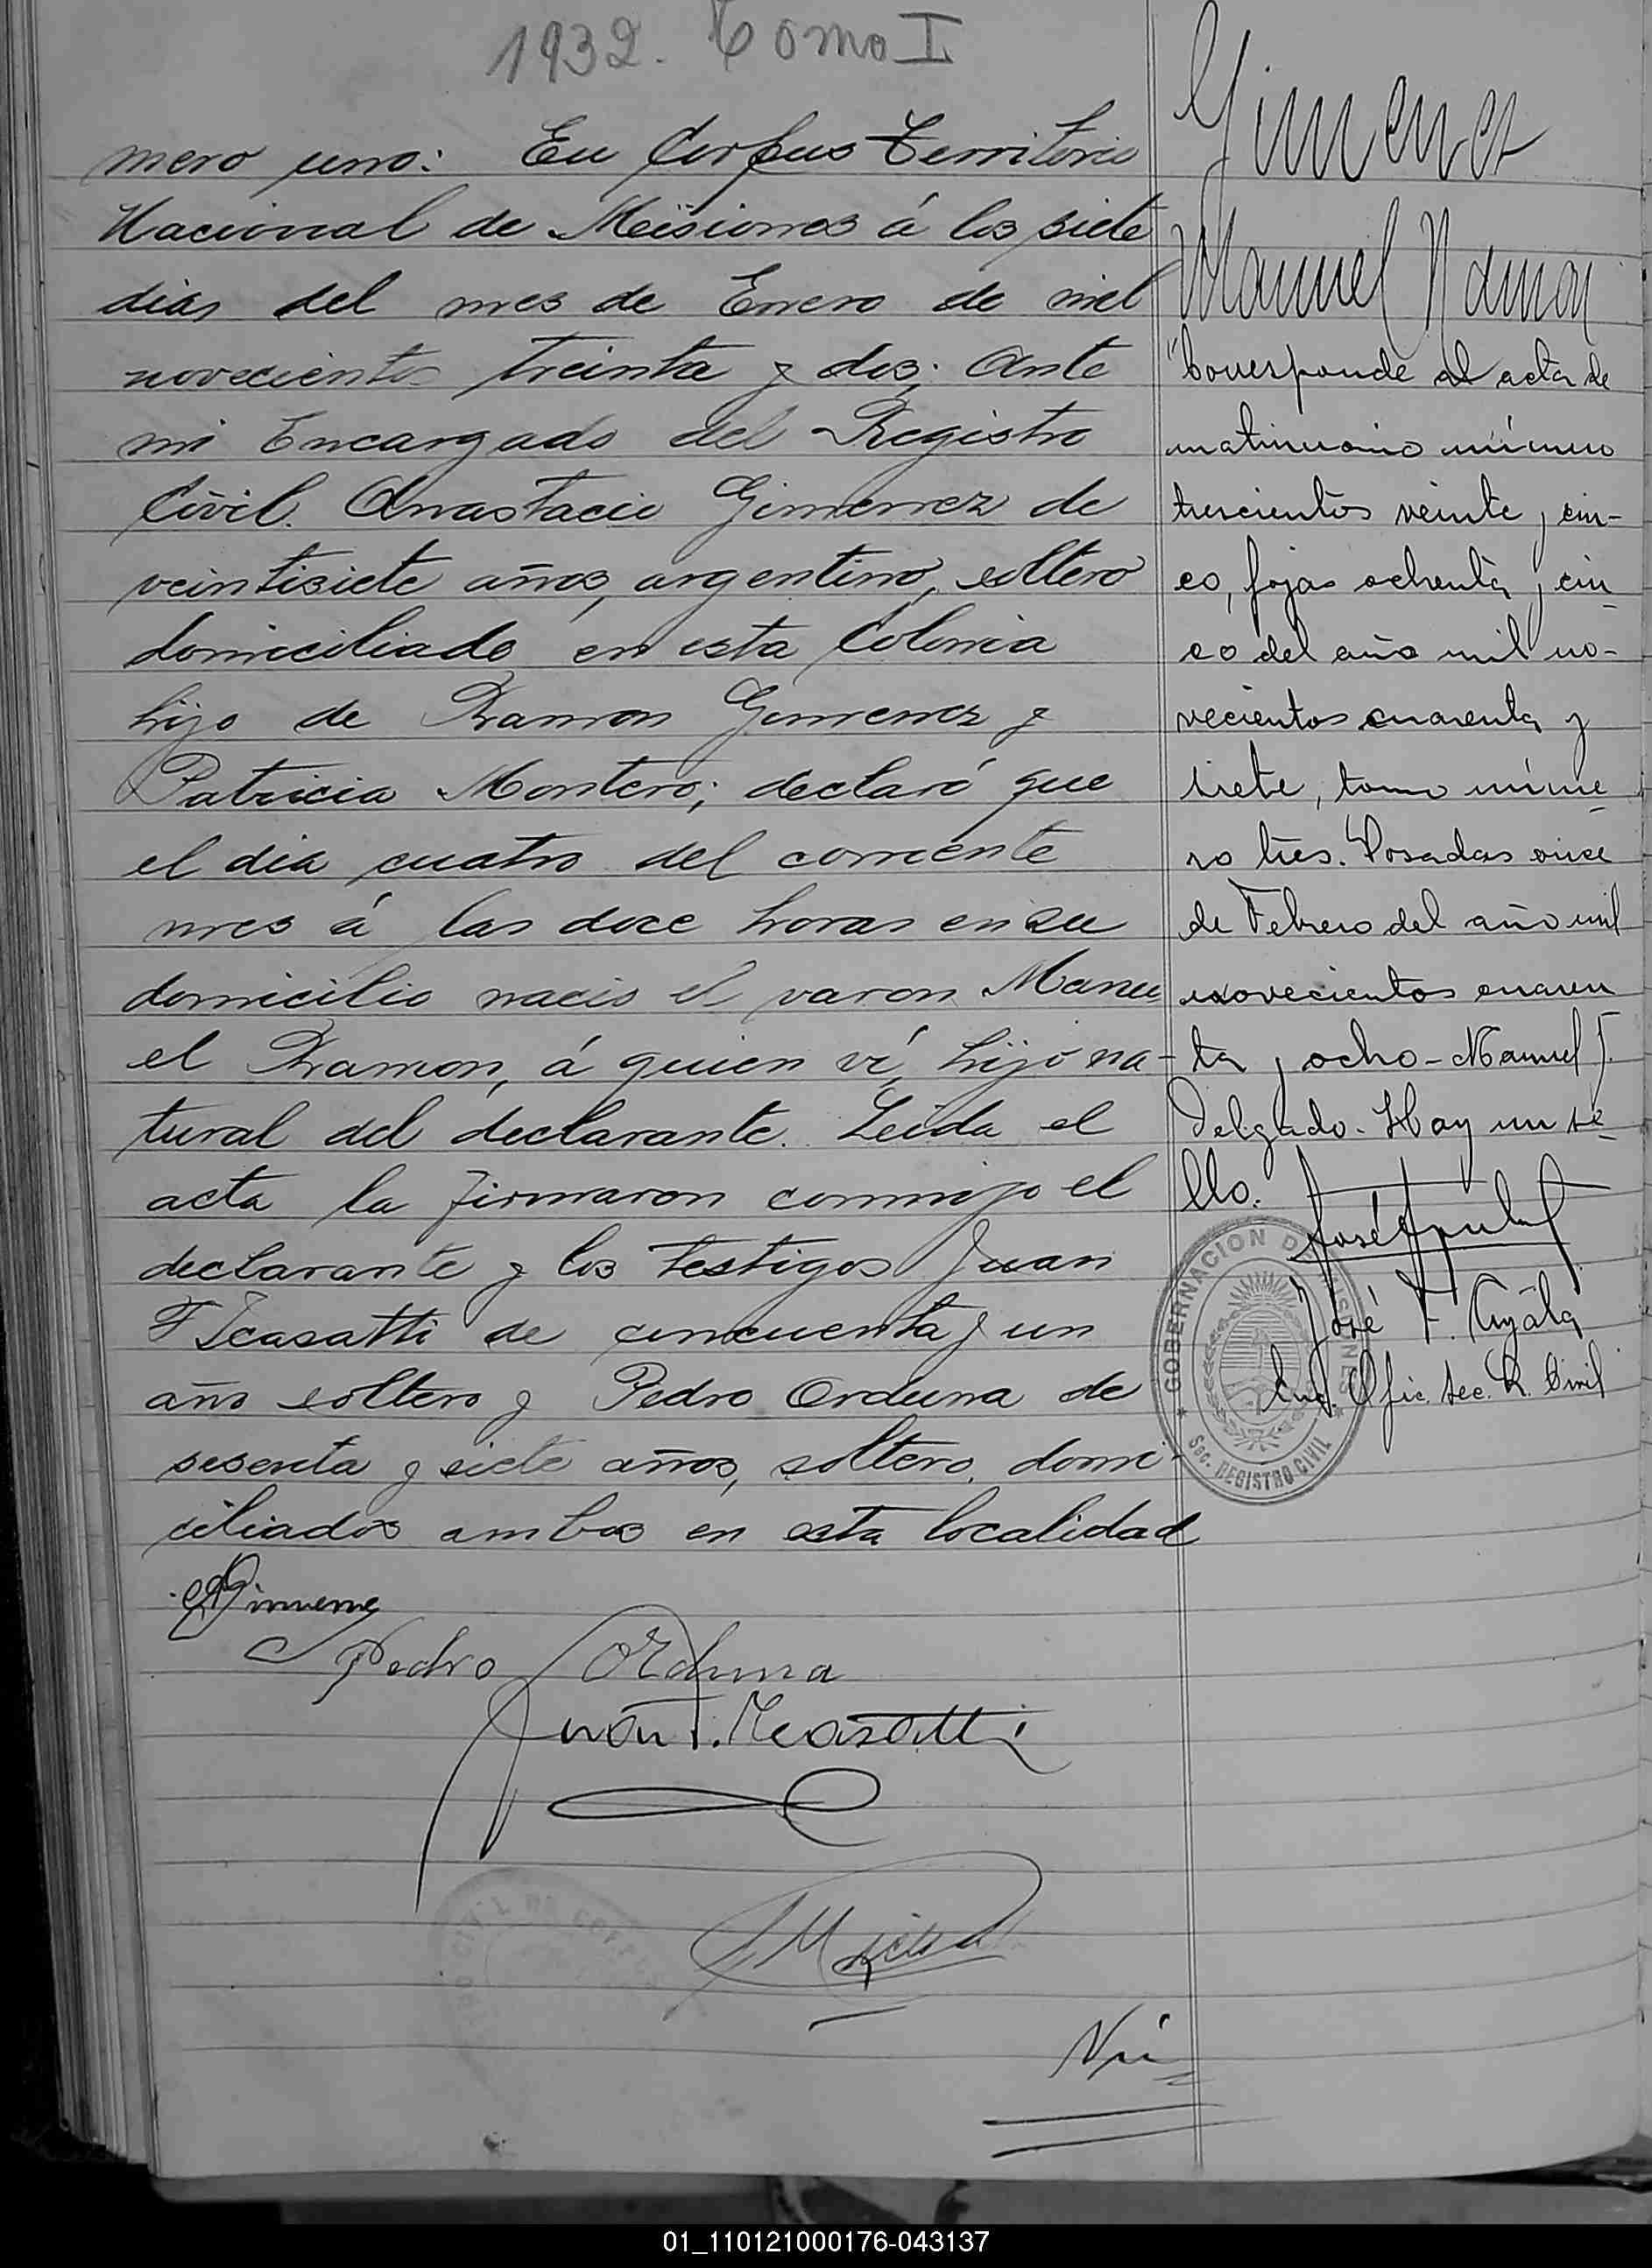 1932. Tomo I
mero uno: En Corpus Territorio
Nacional de Misiones á los siete
dias del mes de Enero de mil
novecientos treinta y dos; Ante
mi Encargado del Registro
Civil. Anastacio Gimenez de
veintisiete años, argentino, soltero
domiciliado en esta Colonia
hijo de Ramon Gimenez y
Patricia Montero; declaró que
el dia cuatro del corriente
mes á las doce horas en su
domicilio nacio el varon Manu
el Ramon, á quien ví, hijo na-
tural del declarante. Leida el
acta la firmaron conmigo el
declarante y los testigos Juan
F Icasatti de cincuenta y un
año soltero y Pedro Orduna de
sesenta y siete años, soltero, domi-
ciliados ambos en esta localidad
Gimenez
Pedro Orduna
Juan F. Icasatti
Gimenez
Manuel Ramon
"Corresponde al acta de
matrimonio número
trescientos veinte y cin-
co, fojas ochenta y cin
co del año mil no-
vecientos cuarenta y
siete, tomo núme
ro tres. Posadas once
de Febrero del año mil
novecientos cuaren
ta y ocho - Manuel J.
Delgado - Hay un se
llo.
José F. Ayála
Enc. Ofic. Sec. R. Civil
GOBERNACION DE MISIONES
Sec. REGISTRO CIVIL
01_110121000176-043137